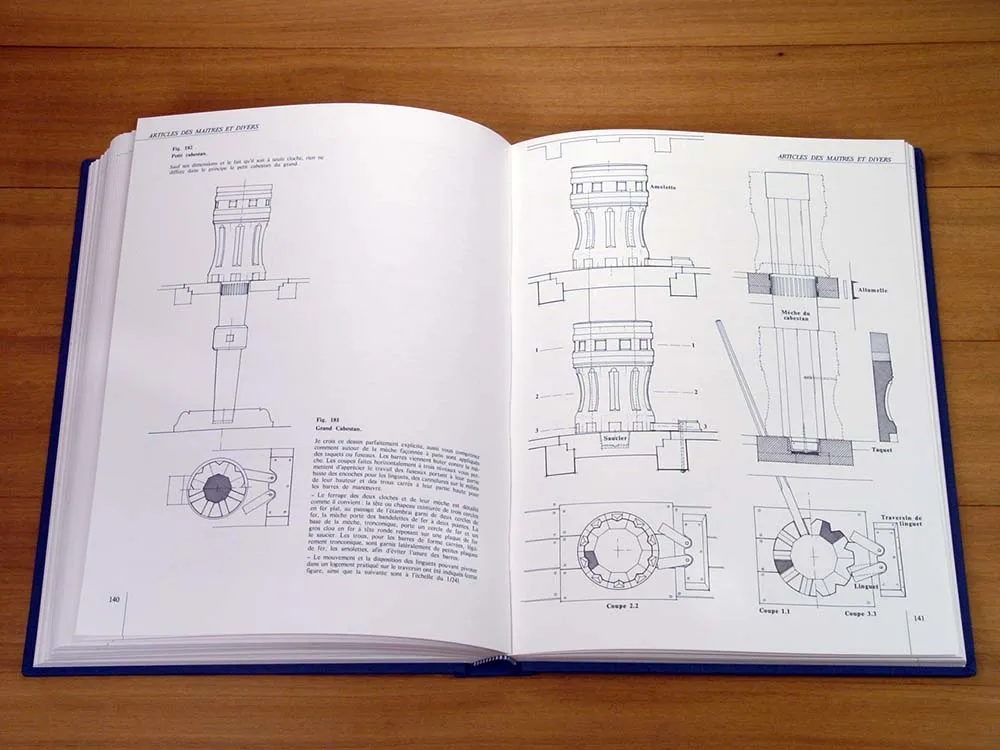 ARTICLES DES MAITRES ET DIVERS
Fig. 182
Petit cabestan.
Sauf ses dimensions et le fait qu'il soit à seule cloche, rien ne
diffère dans le principe le petit cabestan du grand.
Fig. 181
Grand Cabestan.
Je crois ce dessin parfaitement explicite, aussi vous comprenez
comment autour de la mèche façonnée à pans sont appliqués
des taquets ou fuseaux. Les barres viennent buter contre la mè-
che. Les coupes faites horizontalement à trois niveaux vous per-
mettent d'apprécier le travail des fuseaux portant à leur partie
basse des encoches pour les linguets, des cannelures sur le milieu
de leur hauteur et des trous carrés à leur partie haute pour
les barres de manœuvre.
– Le ferrage des deux cloches et de leur mèche est détaillé
comme il convient : la tête ou chapeau ceinturée de trois cercles
en fer plat, au passage de l'étambrai garni de deux cercles de
fer, la mèche porte des bandelettes de fer à deux pointes. La
base de la mèche, tronconique, porte un cercle de fer et un
gros clou en fer à tête ronde reposant sur une plaque de fer
le saucier. Les trous, pour les barres de forme carrées, légè-
rement tronconique, sont garnis latéralement de petites plaques
de fer, les amolettes, afin d'éviter l'usure des barres.
– Le mouvement et la disposition des linguets pouvant pivoter
dans un logement pratiqué sur le traversin ont été indiqués (cette
figure, ainsi que la suivante sont à l'échelle du 1/24).
140
ARTICLES DES MAITRES ET DIVERS
Amolette
Allumelle
Mèche du
cabestan
1
1
2
2
3
3
Saucier
Taquet
Traversin de
linguet
Linguet
Coupe 2.2
Coupe 1.1
Coupe 3.3
141